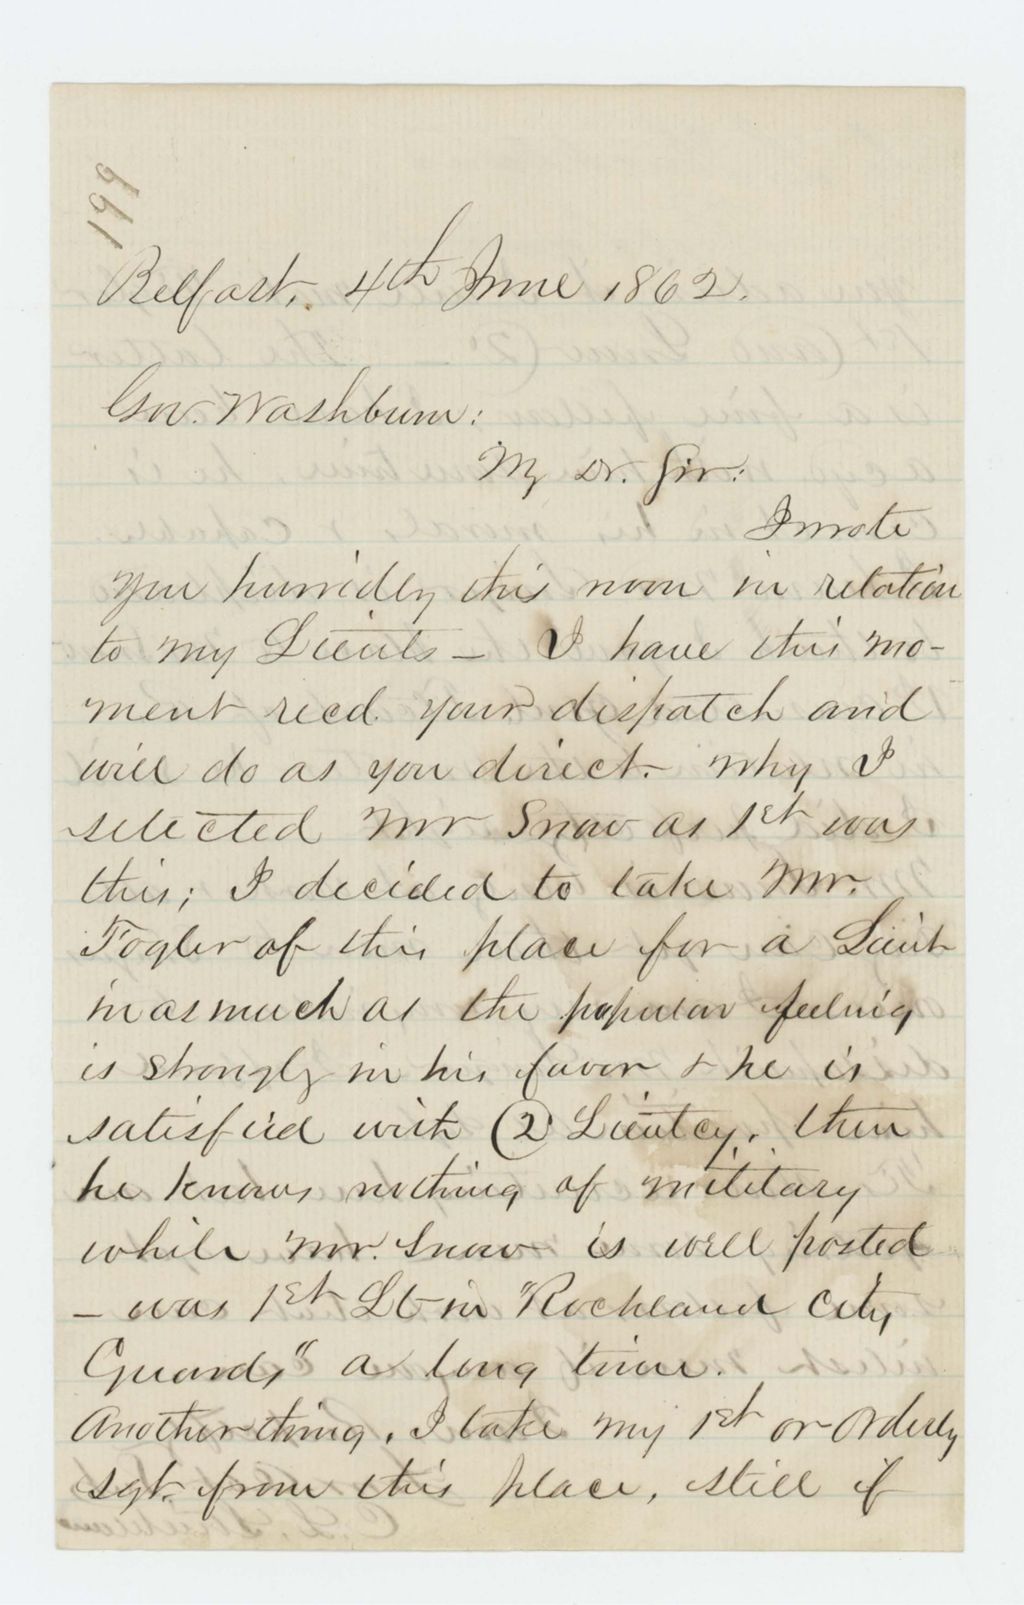 199
Belfast, 4th June 1862.
Gov. Washburn:
My Dr. Sir:
I wrote
you hurridly this noon in relation
to my Lieuts — I have this mo-
ment recd. your dispatch and
will do as you direct. Why I
selected Mr Snow as 1st was
this; I decided to take Mr.
Fogler of this place for a Lieut
inasmuch as the popular feeling
is strongly in his favor & he is
satisfied with (2) Lieutcy. then
he knows nothing of military
while Mr. Snow is well posted
— was 1st Lt in "Rockland City
Guards" a long time.
Another thing, I take my 1st or Orderly
sgt. from this place, still if